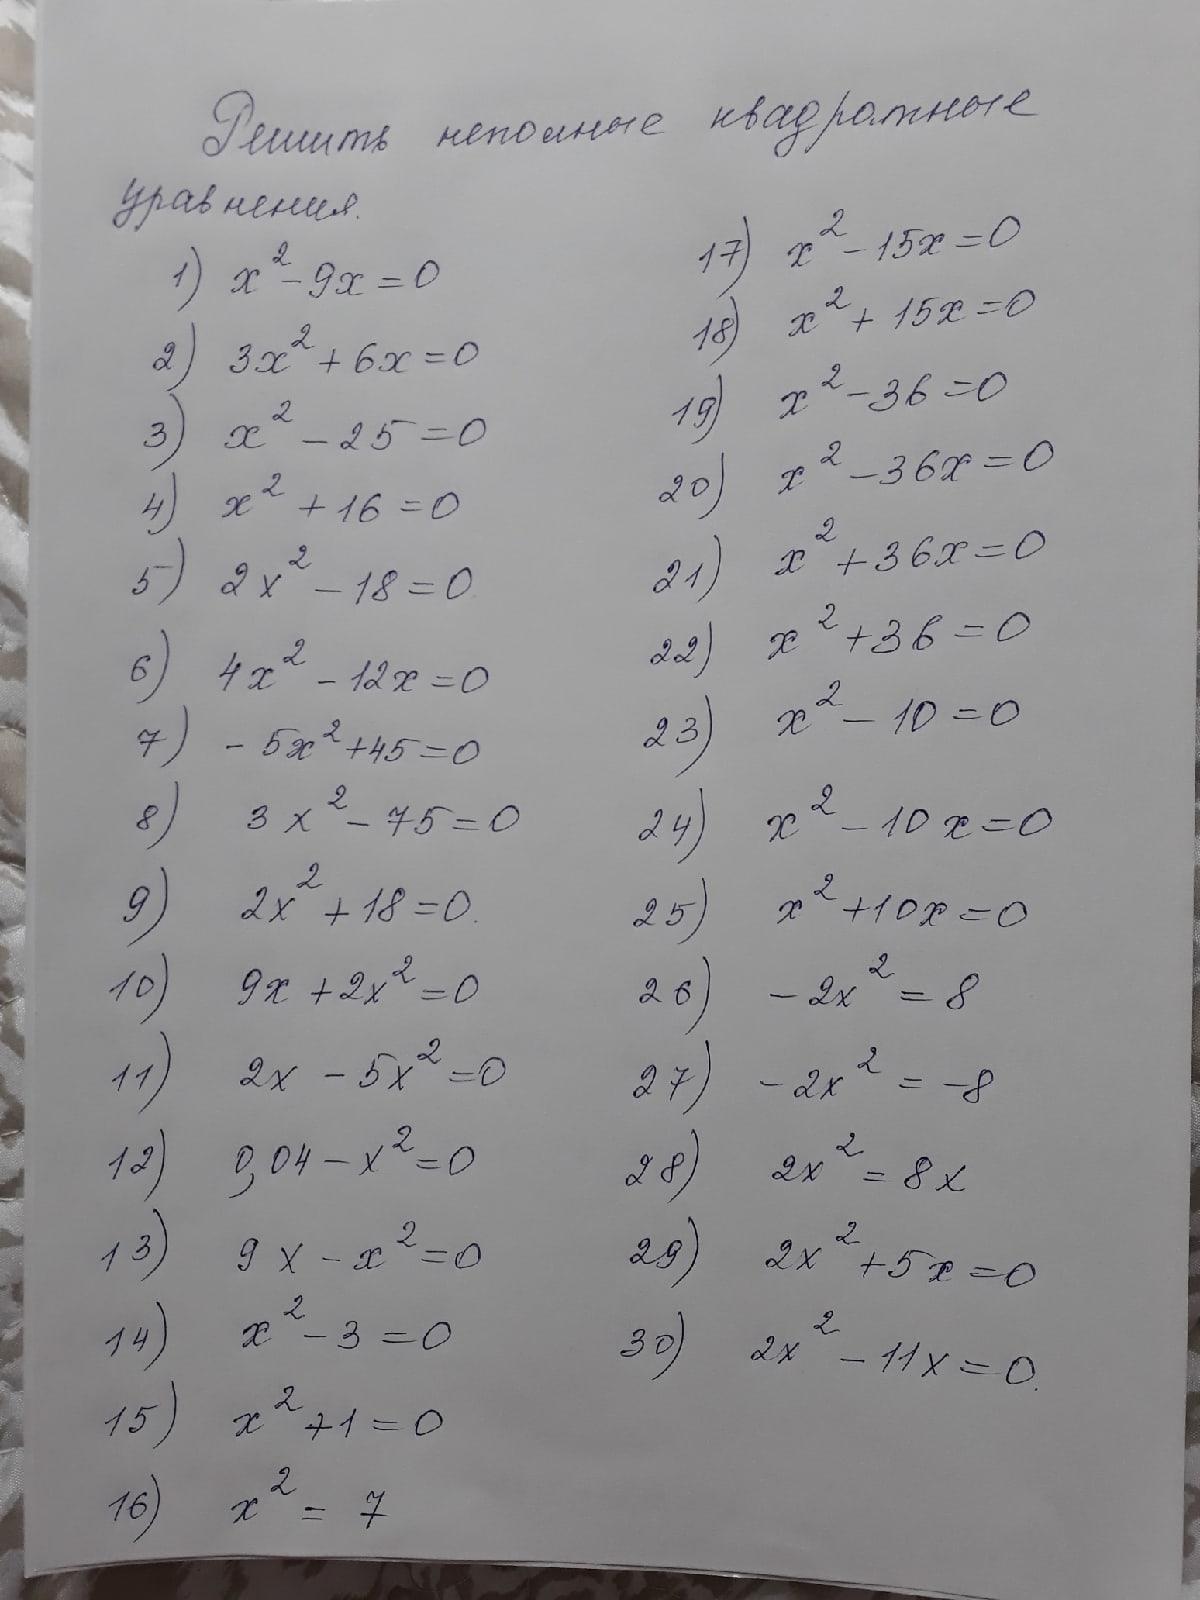 Решить неполные квадратные
уравнения.
1) x² - 9x = 0
2) 3x² + 6x = 0
3) x² - 25 = 0
4) x² + 16 = 0
5) 2x² - 18 = 0
6) 4x² - 12x = 0
7) - 5x² + 45 = 0
8) 3x² - 75 = 0
9) 2x² + 18 = 0.
10) 9x + 2x² = 0
11) 2x - 5x² = 0
12) 0,04 - x² = 0
13) 9x - x² = 0
14) x² - 3 = 0
15) x² + 1 = 0
16) x² = 7
17) x² - 15x = 0
18) x² + 15x = 0
19) x² - 36 = 0
20) x² - 36x = 0
21) x² + 36x = 0
22) x² + 36 = 0
23) x² - 10 = 0
24) x² - 10x = 0
25) x² + 10x = 0
26) - 2x² = 8
27) - 2x² = -8
28) 2x² = 8x
29) 2x² + 5x = 0
30) 2x² - 11x = 0.